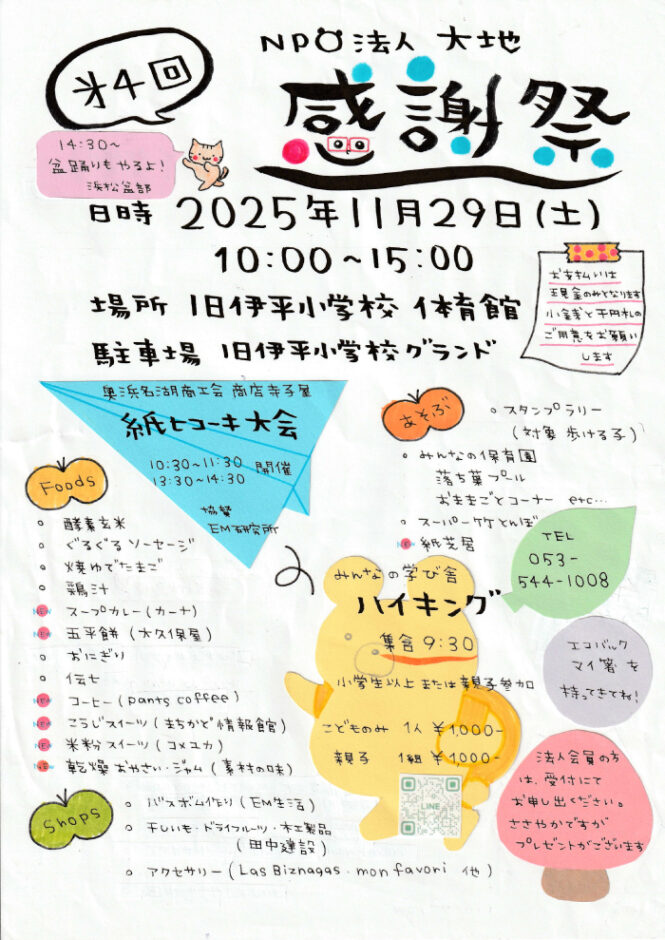 NPO法人 大地
才4回
感謝祭
14:30～
盆踊りもやるよ!
浜松盆部
日時 2025年11月29日(土)
10:00～15:00
場所 旧伊平小学校 体育館
駐車場 旧伊平小学校グランド
お支払いは
現金のみとなります
小銭と千円札の
ご用意をお願い
します
奥浜名湖商工会 商店寺子屋
紙ヒコーキ大会
10:30～11:30
13:30～14:30
開催
協賛
EM研究所
あそぶ
○スタンプラリー
(対象 歩ける子)
○みんなの保育園
落ち葉プール
おままごとコーナー etc...
○スーパー竹とんぼ
NEW 紙芝居
TEL
053-
544-1008
Foods
○酵素玄米
○ぐるぐるソーセージ
○焼ゆでたまご
○鶏汁
NEW スープカレー(カーナ)
NEW 五平餅(大久保屋)
○おにぎり
○伝七
NEW コーヒー(pants coffee)
NEW こうじスイーツ(まちかど情報館)
NEW 米粉スイーツ(コメユカ)
NEW 乾燥おやさい・ジャム(素材の味)
みんなの学び舎
ハイキング
集合 9:30
小学生以上または親子参加
こどものみ 1人 ¥1,000-
親子 1組 ¥1,000-
LINE
エコバック
マイ箸を
持ってきてね!
法人会員の方
は、受付にて
お申し出ください。
ささやかですが
プレゼントがございます
Shops
○バスボム作り(EM生活)
○干しいも・ドライフルーツ・木工製品
(田中建設)
○アクセサリー(Las Biznagas・mon favori 他)